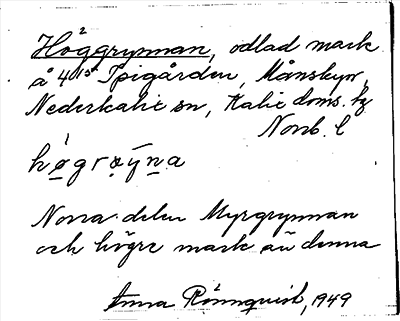 Höggrynnan, odlad mark
å 4 15 Spigården, Månsbyn,
Nederkalix sn, Kalix doms. hg
Norrb. l
högrøýna
Norra delen Myrgrynnan
och högre mark än denna
Anna Rönnqvist, 1949